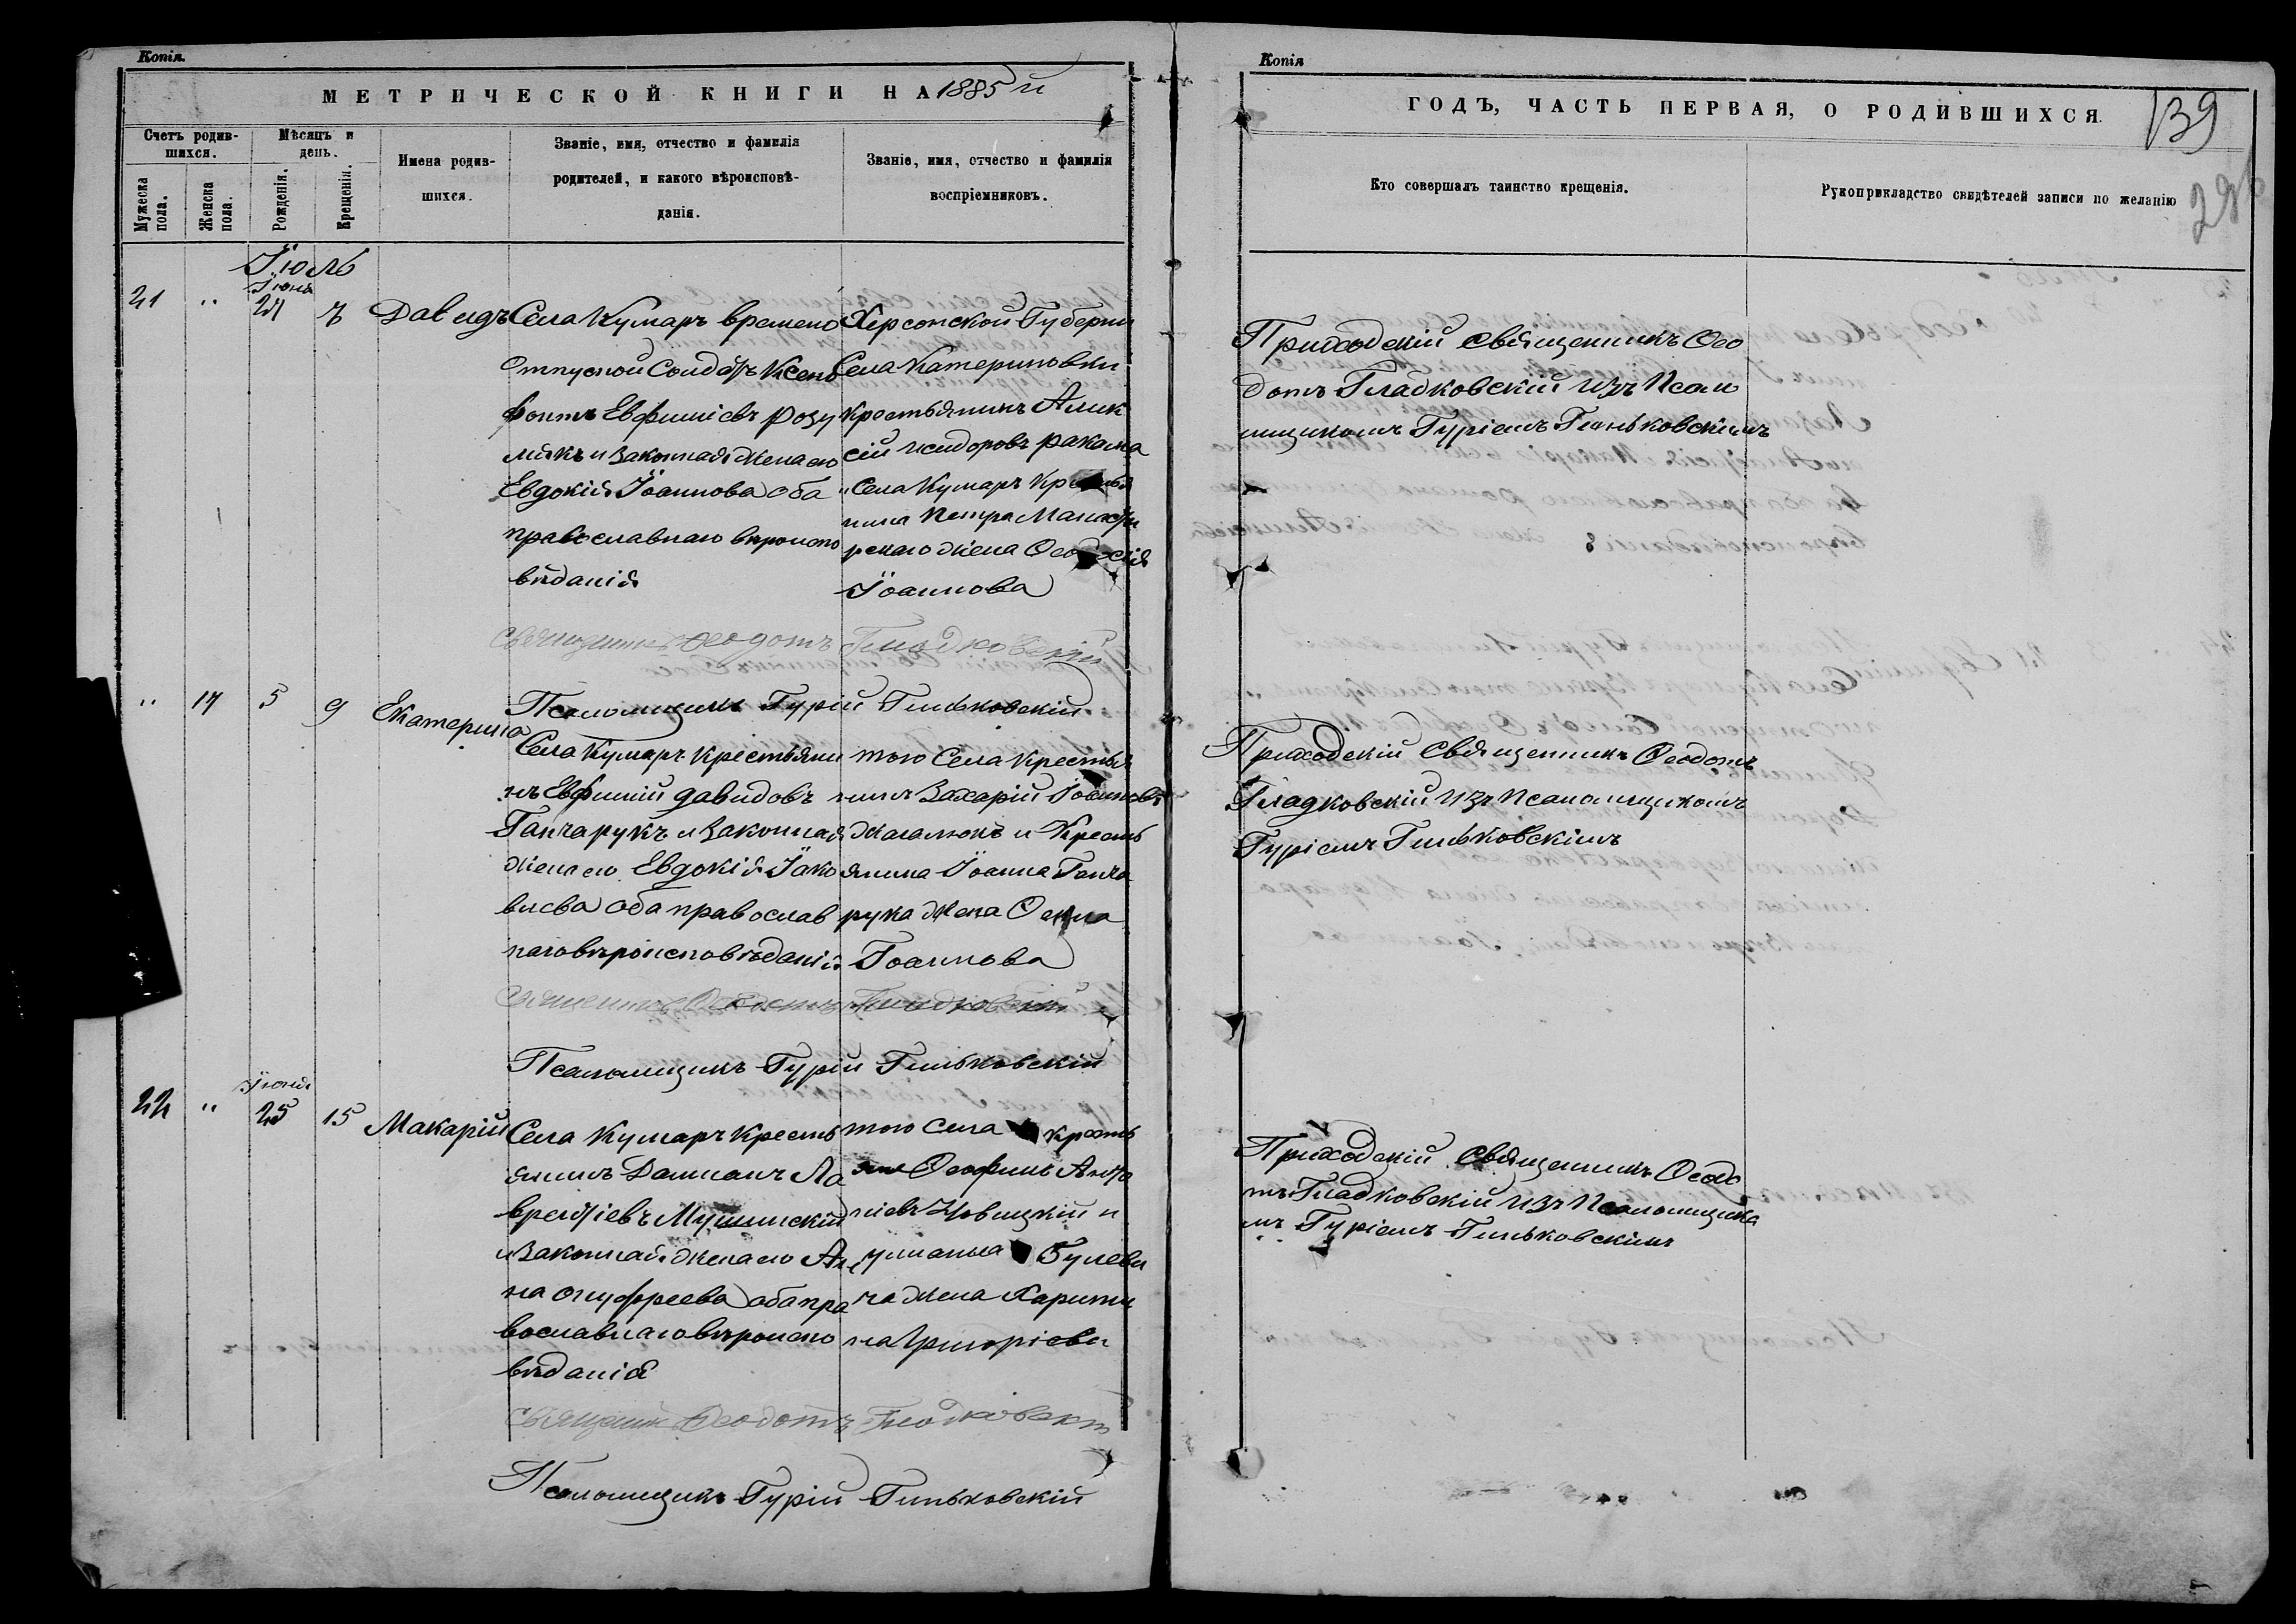 Копія.
МЕТРИЧЕСКОЙ КНИГИ НА 1885 й
Счетъ родив-
шихся.
Мѣсяцъ и
день.
Мужеска
пола.
Женска
пола.
Рожденія.
Крещенія.
Имена родив-
шихся.
Званіе, имя, отчество и фамилія
родителей, и какого вѣроисповѣ-
данія.
Званіе, имя, отчество и фамилія
воспріемниковъ.
Іюль
Іюня
21 " Давидъ
Села Кумаръ времено
Отпускной Солдатъ Ксено
фонтъ Евфиміевъ Розу
мякъ и Законная Жена его
Евдокія Іоаннова оба
православнаго вѣроиспо
вѣданія
Херсонской Губерніи
Села Катериновки
Крестьянинъ Алик
сій Исидоровъ
и Села Кумаръ
нина Петра
жена
Іоаннова
Священникъ Ѳеодотъ Гладковскій
Псаломщикъ Гурій Гиньковскій
" 17 5 9 Екатерина
Села Кумаръ Крестьяни
нъ Евфимій Давидовъ
Ганчарукъ и Законная
Жена его Евдокія Іако
влева Оба православ
наго вѣроисповѣданія
того Села Крестья
нинъ Захарій Іоанновъ
и Кресть
янина Іоанна Ганча
рука Жена
Іоаннова
Священникъ Ѳеодотъ Гладковскій
Псаломщикъ Гурій Гиньковскій
Іюня
22 " 25 15 Макарій
Села Кумаръ Кресть
янинъ Даміанъ Ла
врентіевъ
и Законная Жена его Ан
на Онуфреева оба пра
вославнаго вѣроиспо
вѣданія
того Села
Ѳеофилъ Анто
ніевъ и
ча Жена Харити
на Григоріева
Священникъ Ѳеодотъ Гладковскій
Псаломщикъ Гурій Гиньковскій
Копія
ГОДЪ, ЧАСТЬ ПЕРВАЯ, О РОДИВШИХСЯ.
139
Кто совершалъ таинство крещенія.
Рукоприкладство свидѣтелей записи по желанію
Приходскій Священникъ Ѳео
дотъ Гладковскій Изъ Псало
мщикомъ Гуріемъ Гиньковскимъ
Приходскій Священникъ Ѳеодотъ
Гладковскій Изъ Псаломщикомъ
Гуріемъ Гиньковскімъ
Приходскій Священникъ Ѳеодо
тъ Гладковскій Изъ Псаломщико
мъ Гуріемъ Гиньковскімъ